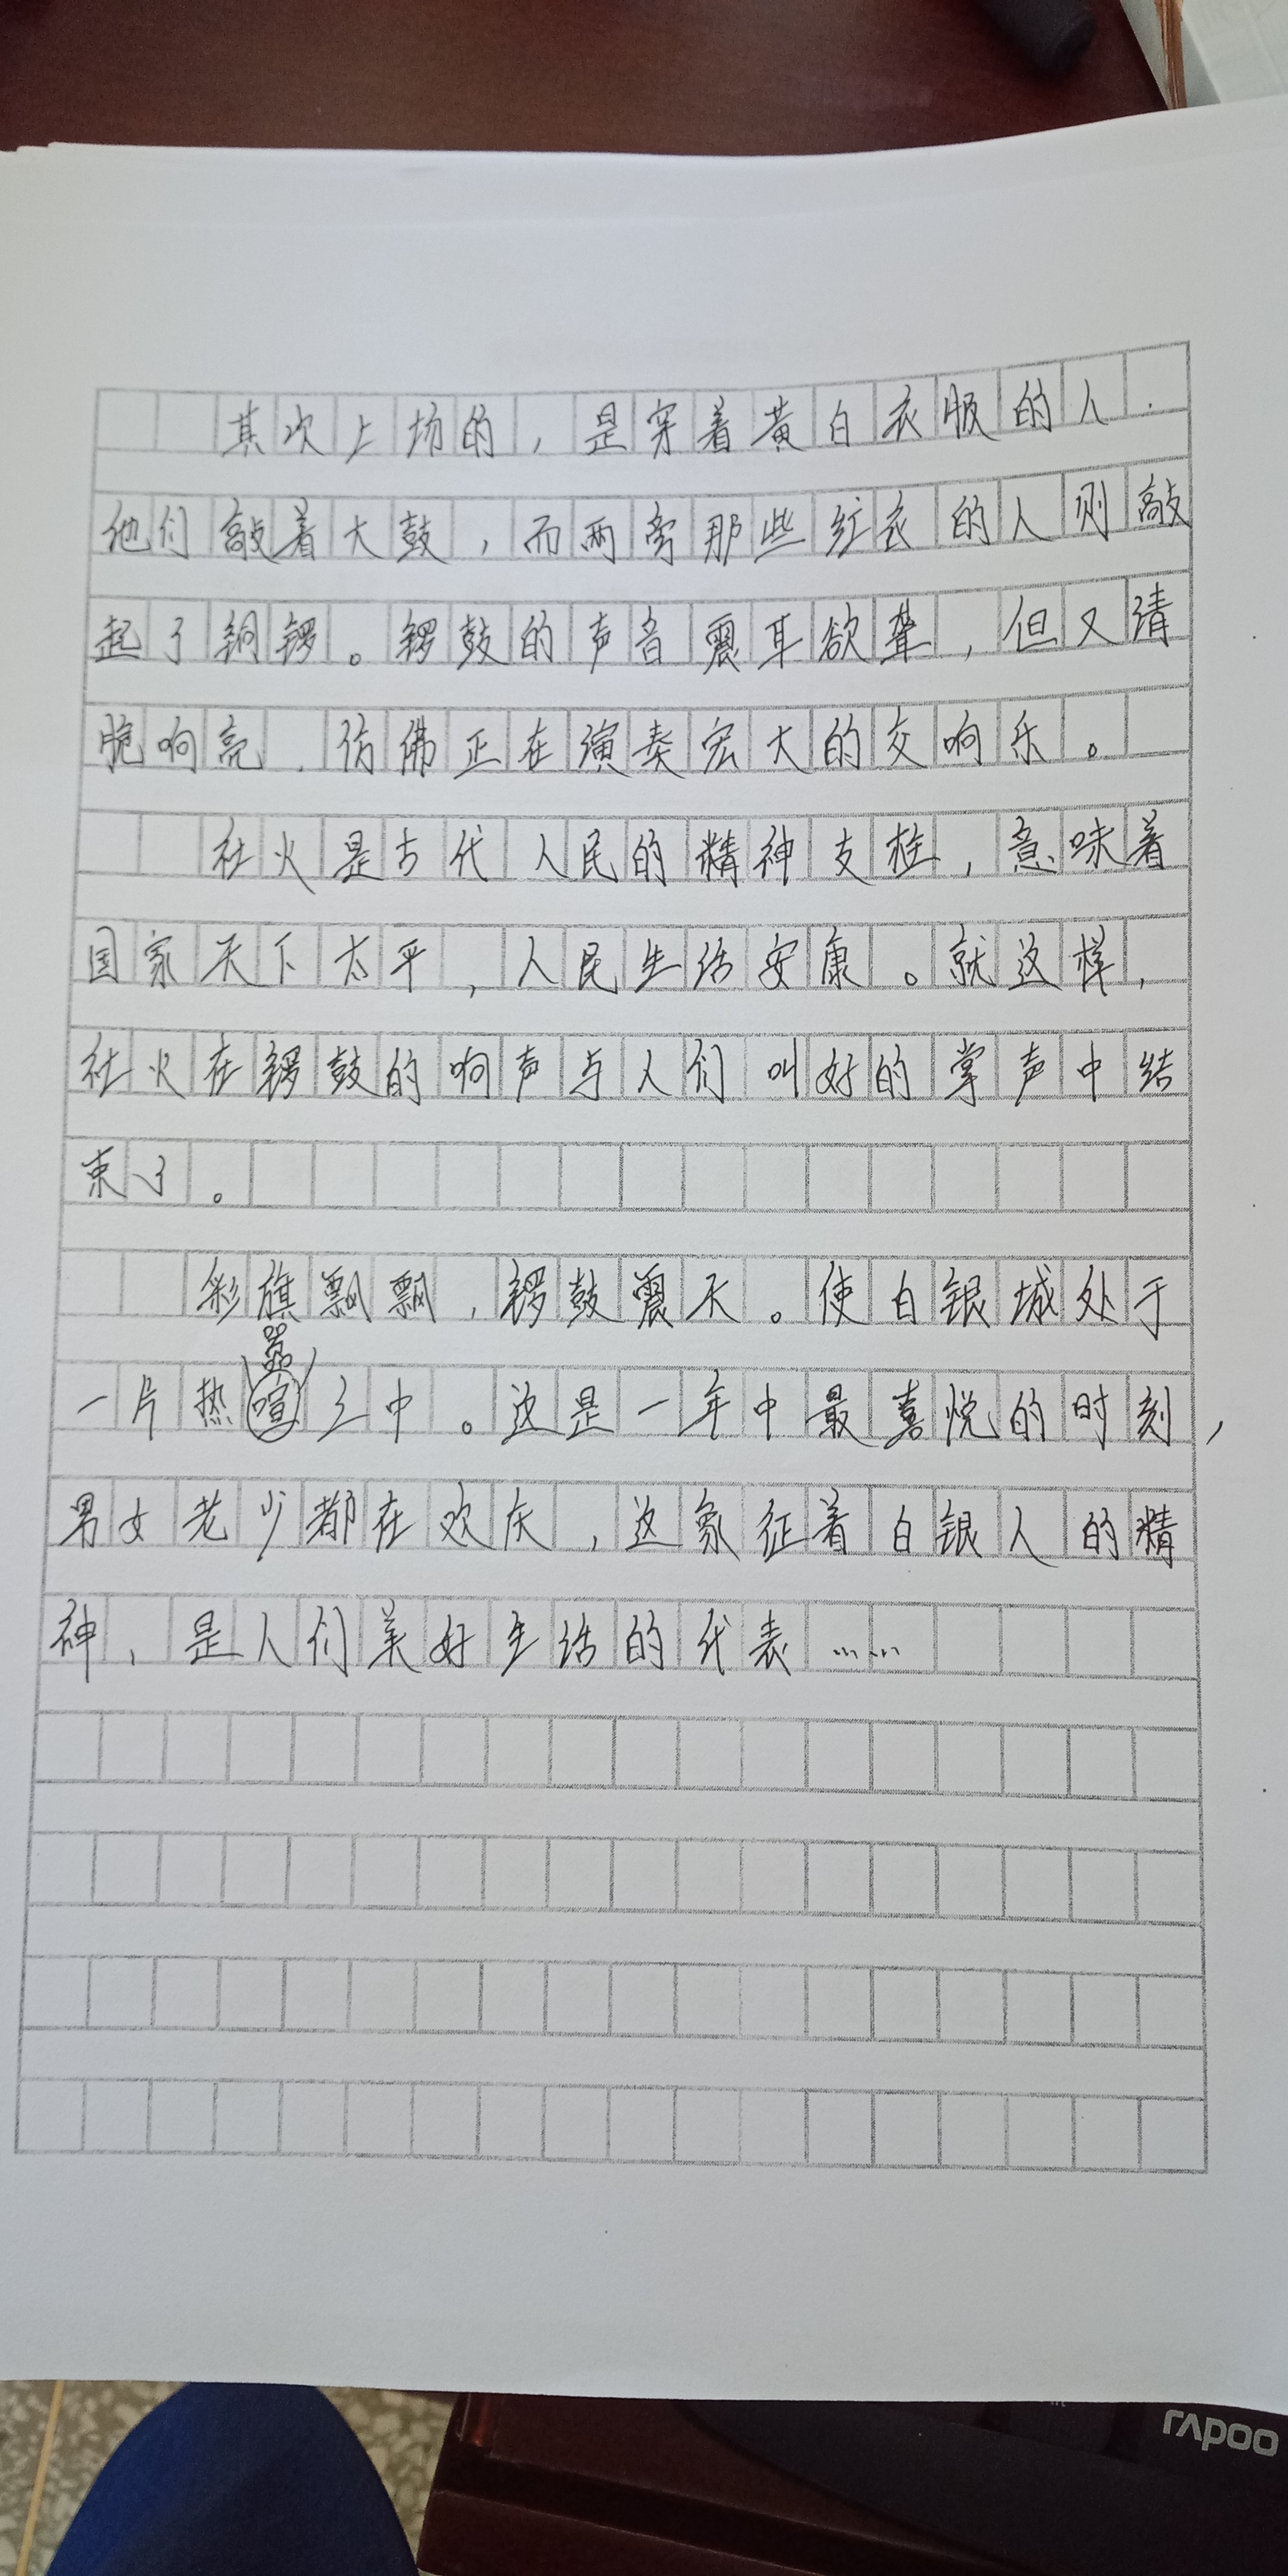 其次上场的，是穿着黄白衣服的人.
他们敲着大鼓，而两旁那些红衣的人则敲
起了铜锣。锣鼓的声音震耳欲聋，但又清
脆响亮，仿佛正在演奏宏大的交响乐。
社火是古代人民的精神支柱，意味着
国家天下太平，人民生活安康。就这样，
社火在锣鼓的响声与人们叫好的掌声中结
束了。
彩旗飘飘，锣鼓震天。使白银城处于
嚣
一片热喧之中。这是一年中最喜悦的时刻，
男女老少都在欢庆，这象征着白银人的精
神，是人们美好生活的代表……
rapoo